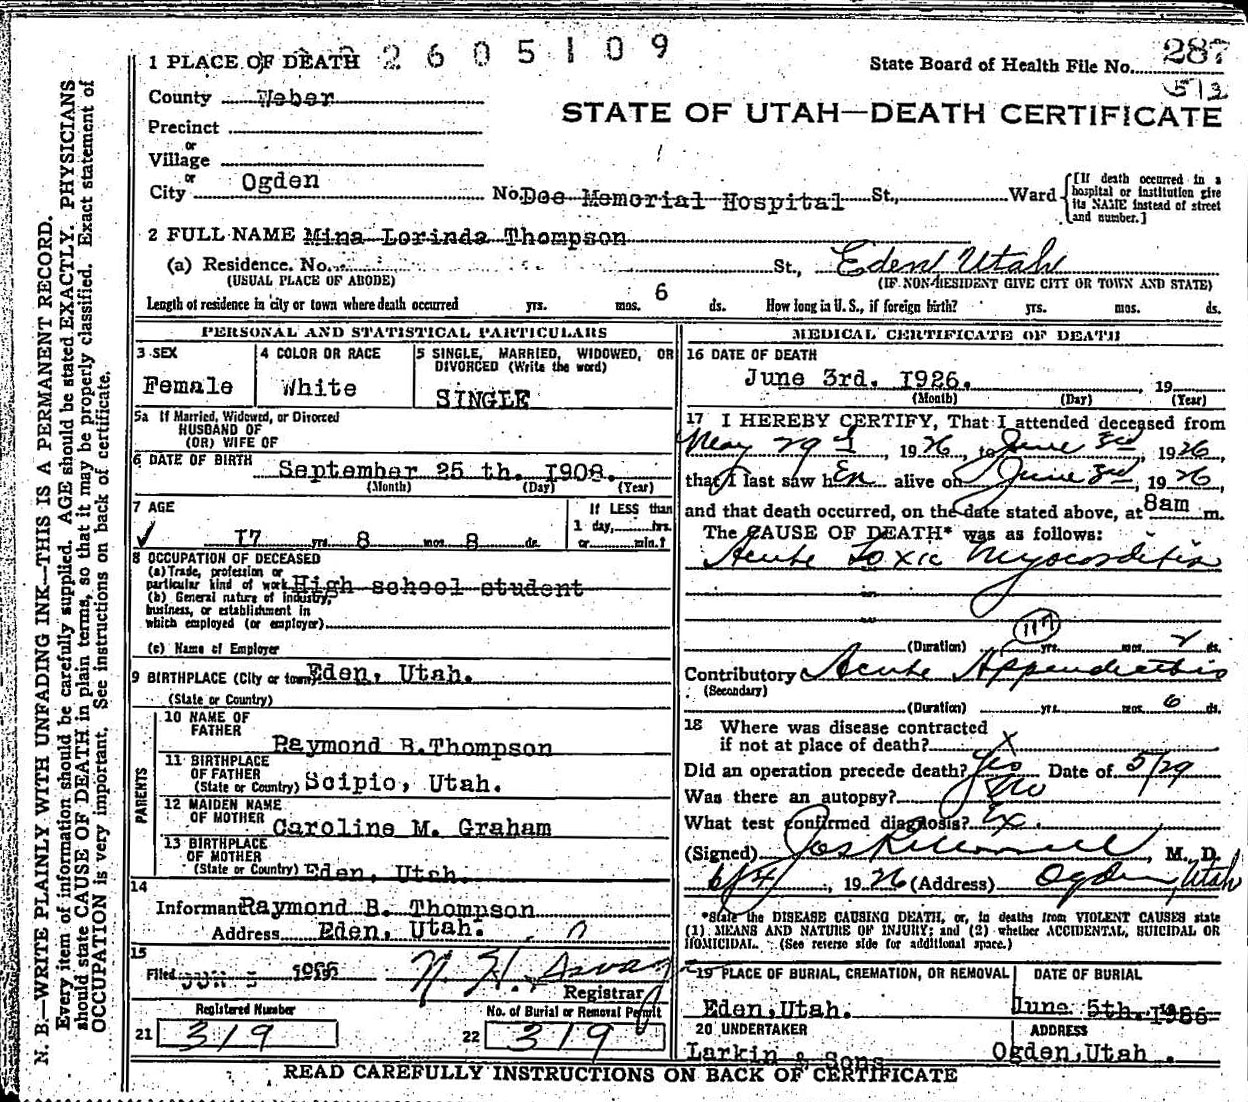 2605109
1 PLACE OF DEATH
State Board of Health File No. 287
513
County Weber
STATE OF UTAH—DEATH CERTIFICATE
Precinct
or
Village
or
City Ogden No. Dee Memorial Hospital St., Ward
[If death occurred in a hospital or institution give its NAME instead of street and number.]
2 FULL NAME Mina Lorinda Thompson
(a) Residence. No. St., Eden Utah
(USUAL PLACE OF ABODE) (IF NON-RESIDENT GIVE CITY OR TOWN AND STATE)
Length of residence in city or town where death occurred yrs. mos. 6 ds. How long in U. S., if foreign birth? yrs. mos. ds.
PERSONAL AND STATISTICAL PARTICULARS
3 SEX
Female
4 COLOR OR RACE
White
5 SINGLE, MARRIED, WIDOWED, OR
DIVORCED (Write the word)
SINGLE
5a If Married, Widowed, or Divorced
HUSBAND OF
(OR) WIFE OF
6 DATE OF BIRTH
September 25 th. 1908.
(Month) (Day) (Year)
7 AGE
17 yrs. 8 mos. 8 ds.
If LESS than
1 day, hrs.
or min.?
8 OCCUPATION OF DECEASED
(a) Trade, profession or
particular kind of work High school student
(b) General nature of industry,
business, or establishment in
which employed (or employer)
(c) Name of Employer
9 BIRTHPLACE (City or town) Eden, Utah.
(State or Country)
PARENTS
10 NAME OF
FATHER
Raymond B.Thompson
11 BIRTHPLACE
OF FATHER
(State or Country) Scipio, Utah.
12 MAIDEN NAME
OF MOTHER
Caroline M. Graham
13 BIRTHPLACE
OF MOTHER
(State or Country) Eden, Utah.
14
Informant Raymond B. Thompson
Address Eden, Utah.
15
Filed JUN 5 1926
Registrar
Registered Number
21 319
No. of Burial or Removal Permit
22 319
MEDICAL CERTIFICATE OF DEATH
16 DATE OF DEATH
June 3rd. 1926. , 19
(Month) (Day) (Year)
17 I HEREBY CERTIFY, That I attended deceased from
May 29, 1926, to June 3rd, 1926,
that I last saw her alive on June 3rd, 1926,
and that death occurred, on the date stated above, at 8am m.
The CAUSE OF DEATH* was as follows:
Acute Toxic Myocarditis
117
(Duration) yrs. mos. 2 ds.
Contributory Acute Appendicitis
(Secondary)
(Duration) yrs. mos. 6 ds.
18 Where was disease contracted
if not at place of death? X
Did an operation precede death? Yes Date of 5/29
Was there an autopsy? No
What test confirmed diagnosis?
(Signed) , M. D.
6/4, 1926 (Address) Ogden, Utah
*State the DISEASE CAUSING DEATH, or, in deaths from VIOLENT CAUSES state
(1) MEANS AND NATURE OF INJURY; and (2) whether ACCIDENTAL, SUICIDAL OR
HOMICIDAL. (See reverse side for additional space.)
19 PLACE OF BURIAL, CREMATION, OR REMOVAL
Eden,Utah.
DATE OF BURIAL
June 5th. 1926
20 UNDERTAKER
Larkin & Sons
ADDRESS
Ogden,Utah.
READ CAREFULLY INSTRUCTIONS ON BACK OF CERTIFICATE
N. B.—WRITE PLAINLY WITH UNFADING INK—THIS IS A PERMANENT RECORD.
Every item of information should be carefully supplied. AGE should be stated EXACTLY. PHYSICIANS
should state CAUSE OF DEATH in plain terms, so that it may be properly classified. Exact statement of
OCCUPATION is very important. See instructions on back of certificate.